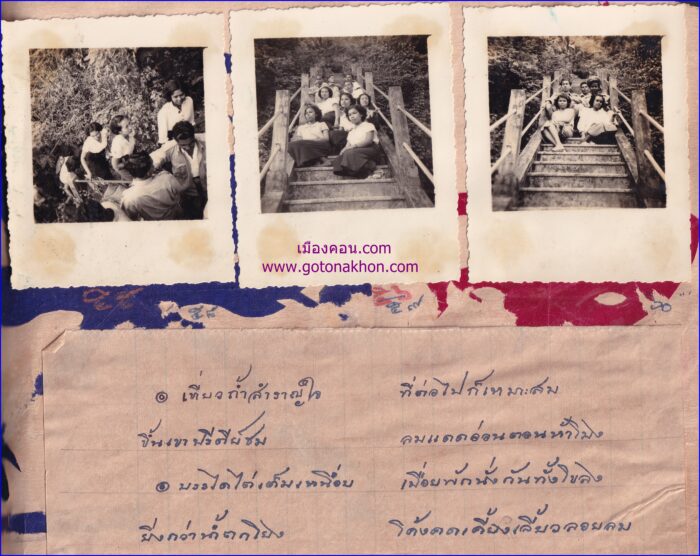 เมืองคอน.com
www.gotonakhon.com
๕๕ ๕๘ ๕๗ ๖๐
๏ เที่ยวถ้ำสำราญใจ ที่ต่อไปก็เหมาะสม
ขึ้นเขาปรีดีย์ชม ลมแดดอ่อนตอนห้าโมง
๏ บรรไดไต่เต็มเหนื่อย เมื่อยพักนั่งกันทั้งโขลง
ยิ่งกว่าน้ำตกโยง โค้งคดเคี้ยวเลี้ยวลอยลม